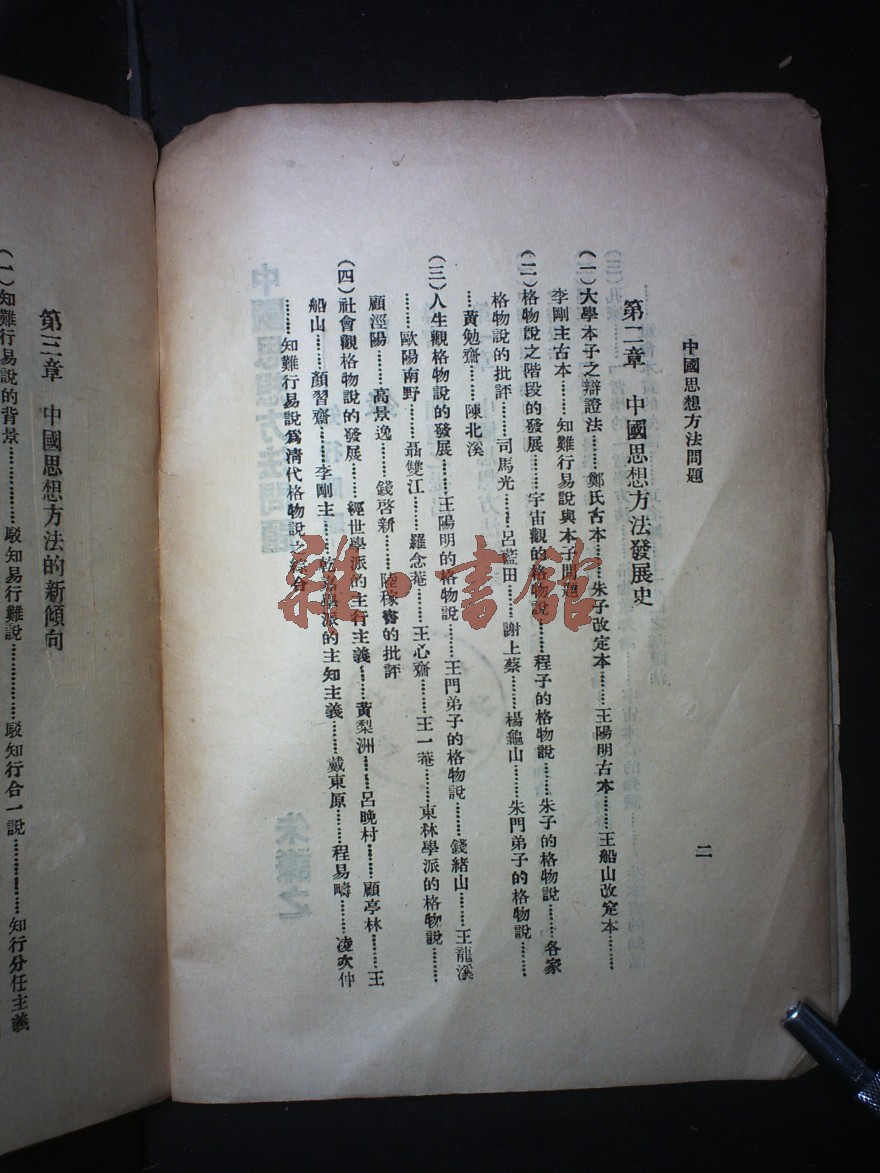 中國思想方法問題
二
第二章　中國思想方法發展史
(一)大學本子之辯證法……鄭氏古本……朱子改定本……王陽明古本……王船山改定本……
李剛主古本……知難行易說與本子問題
(二)格物說之階段的發展……宇宙觀的格物說……程子的格物說……朱子的格物說……各家
格物說的批評……司馬光……呂藍田……謝上蔡……楊龜山……朱門弟子的格物說……
……黃勉齋……陳北溪
(三)人生觀格物說的發展……王陽明的格物說……王門弟子的格物說……錢緒山……王龍溪
……歐陽南野……聶雙江……羅念菴……王心齋……王一菴……東林學派的格物說……
顧涇陽……高景逸……錢啓新……陸稼書的批評
(四)社會觀格物說的發展……經世學派的主行主義……黃梨洲……呂晚村……顧亭林……王
船山……顏習齋……李剛主……乾嘉學派的主知主義……戴東原……程易疇……凌次仲
……知難行易說爲清代格物說之綜合
第三章　中國思想方法的新傾向
(一)知難行易說的背景……駁知易行難說……駁知行合一說……知行分任主義
中國思想方法問題
朱謙之
雜·書館